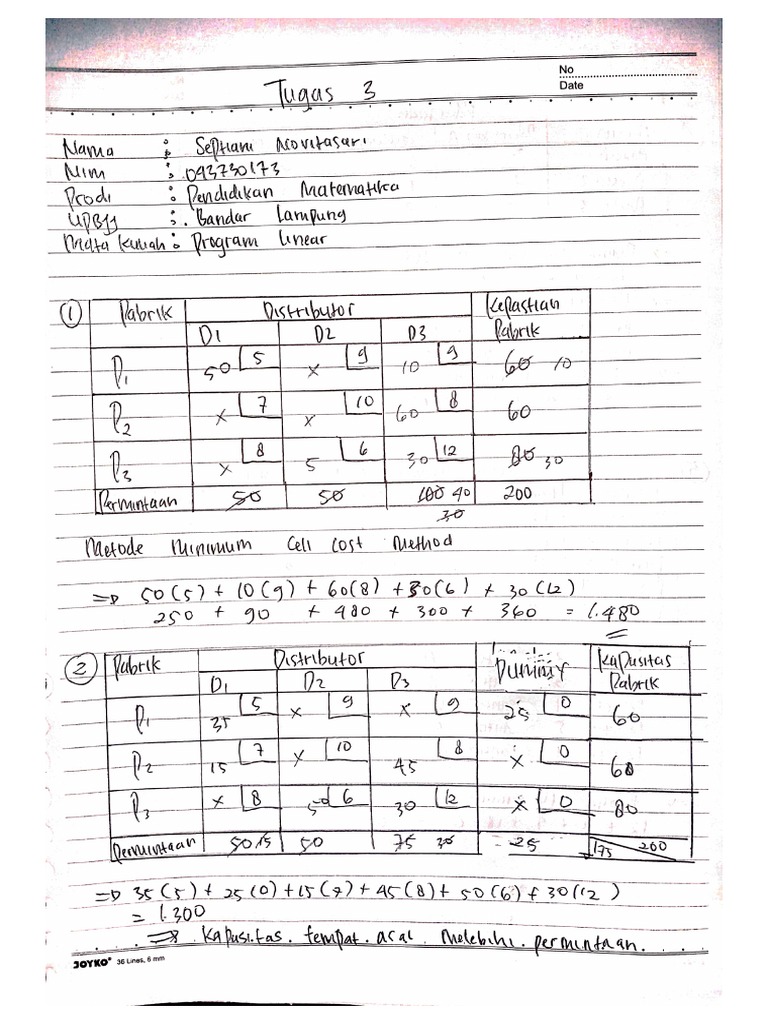 No
Date
Tugas 3
Nama : Septiani Novitasari
Nim : 043730173
Prodi : Pendidikan Matematika
UPBJJ : Bandar Lampung
Mata Kuliah : Program Linear
① Pabrik Distributor Kepastian Pabrik
D1 D2 D3
P1 50 5 x 9 10 9 60 10
P2 x 7 x 10 60 8 60
P3 x 8 5 6 30 12 80 30
Permintaan 50 50 100 40 200
30
Metode Minimum Cell Cost Method
=> 50(5) + 10(9) + 60(8) + 50(6) + 30(12)
250 + 90 + 480 + 300 + 360 = 1.480
② Pabrik Distributor Dummy Kapasitas Pabrik
D1 D2 D3
P1 35 5 x 9 x 9 25 0 60
P2 15 7 x 10 45 8 x 0 60
P3 x 8 50 6 30 12 x 0 80
Permintaan 50 15 50 75 30 = 25 175 200
=> 35(5) + 25(0) + 15(7) + 45(8) + 50(6) + 30(12)
= 1.300
=> Kapasitas tempat asal melebihi permintaan.
JOYKO® 36 Lines, 6 mm